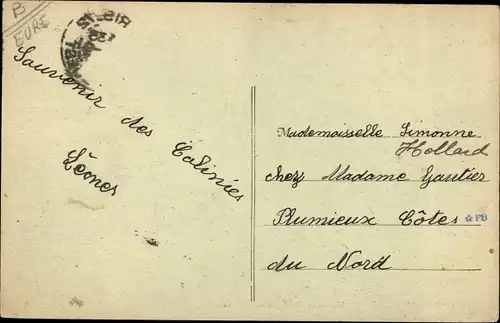 B
EURE
Souvenir des Colinies
Mademoiselle Simonne
Hollard
chez Madame Gautier
Plumieux Côtes
PB
du Nord